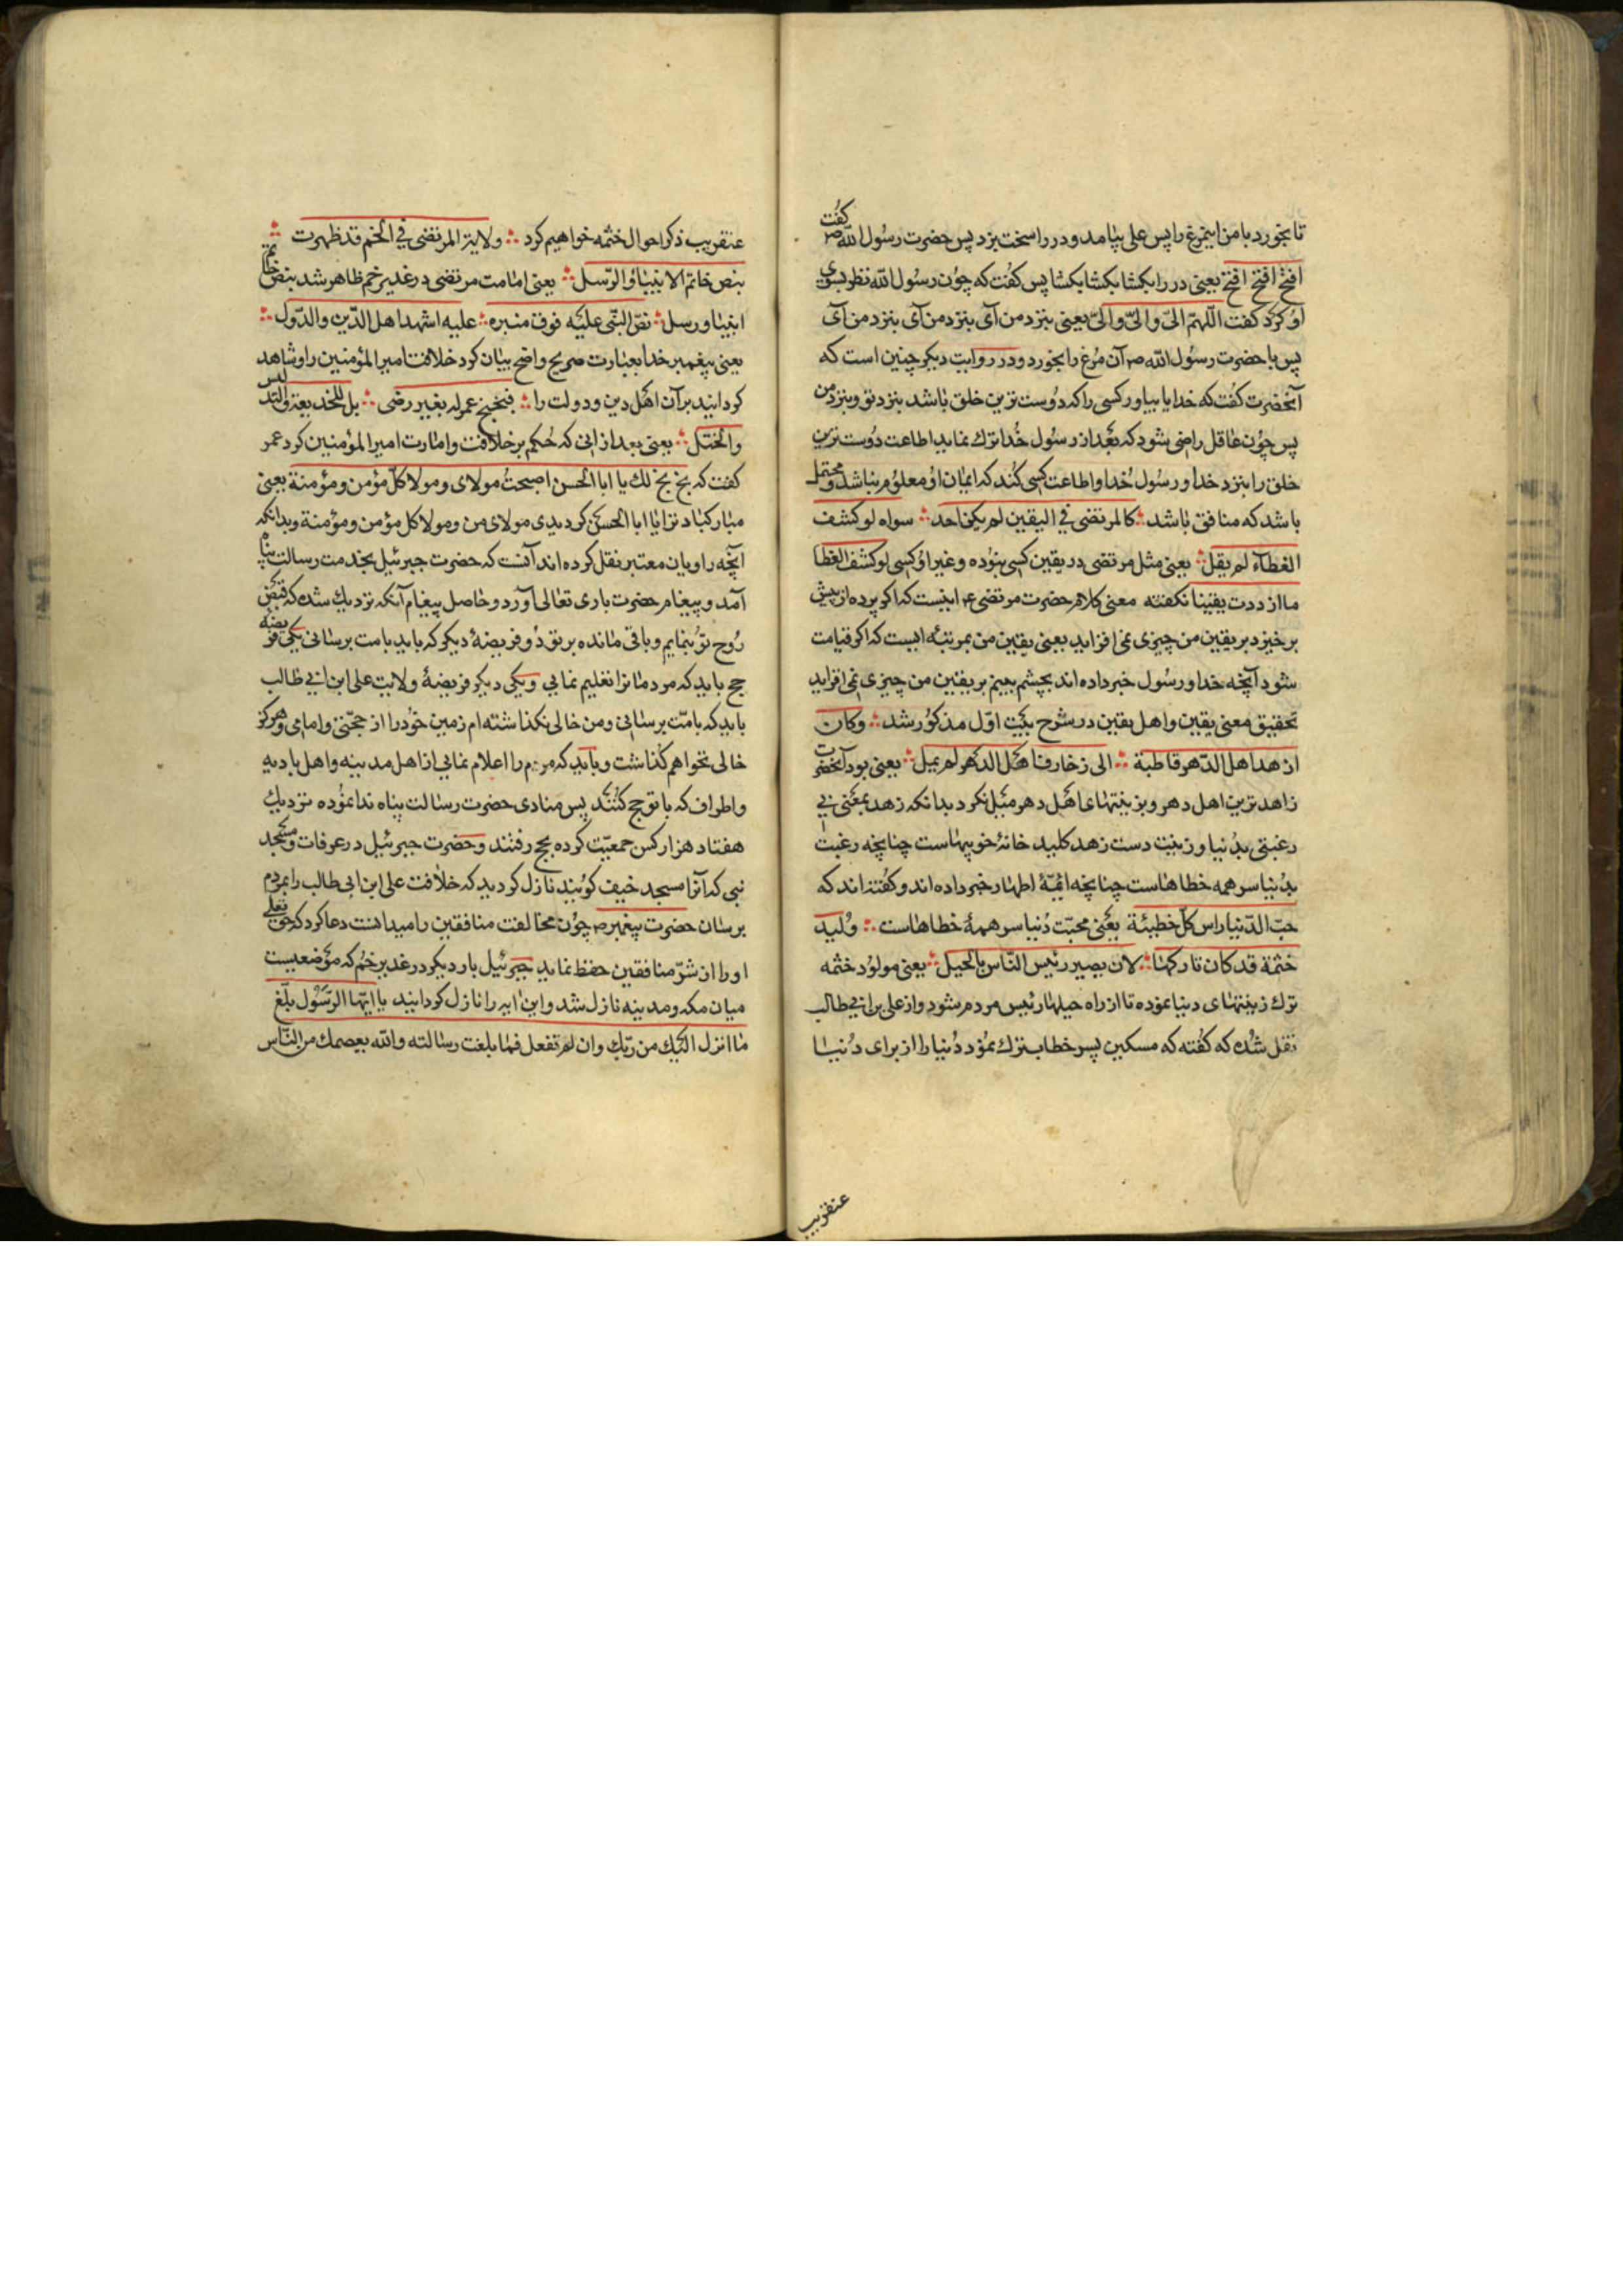 تا بخورد با من این مرغ را پس علی بیامد و در را سخت بزد پس حضرت رسول الله ص گفت
افتح افتح افتح یعنی در را بکشا بکشا بکشا پس کفت که چون رسول الله نظر بسوی
او کرد کفت اللهم الیّ والیّ والیّ یعنی بنزد من آی بنزد من آی بنزد من آی
پس با حضرت رسول الله ص آن مرغ را بخورد و در روایت دیکر چنین است که
آنحضرت کفت که خدایا بیاور کسی را که دوست ترین خلق باشد بنزد تو و بنزد من
پس چون عاقل راضی شود که بعد از رسول خدا ترک نماید اطاعت دوست ترین
خلق را بنزد خدا و رسول خدا و اطاعت کسی کند که ایمان او معلوم نباشد و محتمل
باشد که منافق باشد کالمرتضی فی الیقین لم یکن احد سواه لو کشف
الغطاء لم یقل یعنی مثل مرتضی در یقین کسی نبوده و غیر او کسی لو کشف الغطا
ما ازددت یقینا نکفته معنی کلام حضرت مرتضی ع اینست که اکر پرده از پیش
برخیزد بر یقین من چیزی نمی افزاید یعنی یقین من بمرتبه ایست که اکر قیامت
شود آنچه خدا و رسول خبر داده اند بچشم ببینم بر یقین من چیزی نمی افزاید
تحقیق معنی یقین و اهل یقین در شرح بیت اوّل مذکور شد وکان
ازهد اهل الدّهر قاطبة الی زخارف اهل الدهر لم یمل یعنی بود آنحضرت
زاهدترین اهل دهر و بزینتهای اهل دهر میل نکرد بدانکه زهد بمعنی بی
رغبتی بدنیا و زینت دست زهد کلید خانهٔ خوبیهاست چنانچه رغبت
بدنیا سر همه خطاهاست چنانچه ائمّهٔ اطهار خبر داده اند و کفته اند که
حبّ الدّنیا راس کلّ خطیئة یعنی محبّت دنیا سر همهٔ خطاهاست ولید
ختمة قد کان تارکها لان یصیر رئیس النّاس بالحیل یعنی مولود ختمه
ترک زینتهای دنیا نموده تا از راه حیلها رئیس مردم شود و از علی بن ابی طالب
نقل شده که کفته که مسکین پسر خطاب ترک نمود دنیا را از برای دنیا
عنقریب
عنقریب ذکر احوال ختمه خواهیم کرد ولایة المرتضی فی الخم قد ظهرت
بنص خاتم الانبیاء والرّسل یعنی امامت مرتضی در غدیر خم ظاهر شد بنص خاتم
انبیا و رسل نصّ النّبی علیه فوق منبره علیه اشهد اهل الدّین والدّول
یعنی پیغمبر خدا بعبارت صریح واضح بیان کرد خلافت امیرالمؤمنین را و شاهد
کردانید بر آن اهل دین و دولت را فبخبخ عمر له بغیر رضی بل للخدیعة والتد لیس
والختل یعنی بعد از انی که حکم بر خلافت و امارت امیرالمؤمنین کرد عمر
کفت که بخ بخ لک یا ابا الحسن اصبحت مولای و مولا کلّ مؤمن و مؤمنة یعنی
مبارکباد ترا یا ابا الحسن کردیدی مولای من و مولا کل مؤمن و مؤمنة و بدانکه
آنچه راویان معتبر نقل کرده اند آنست که حضرت جبرئیل بخدمت رسالت پناه
آمد و پیغام حضرت باری تعالی آورد و حاصل پیغام آنکه نزدیک شده که قبض
روح تو بنمایم و باقی مانده بر تو دو فریضهٔ دیکر که باید بامت برسانی یکی فریضه
حج باید که مردمانرا تعلیم نمایی و یکی دیکر فریضهٔ ولایت علی ابن ابی طالب
باید که بامّت برسانی و من خالی نکذاشته ام زمین خود را از حجّتی و امامی و هرکز
خالی نخواهم کذاشت و باید که مردم را اعلام نمایی از اهل مدینه و اهل بادیه
و اطراف که با تو حج کنند پس منادی حضرت رسالت پناه ندا نموده نزدیک
هفتاد هزار کس جمعیّت کرده بحج رفتند و حضرت جبرئیل در عرفات و مسجد
نبی که آنرا مسجد خیف کویند نازل کردید که خلافت علی ابن ابی طالب را بمردم
برسان حضرت پیغمبر ص چون مخالفت منافقین را میدانست دعا کرد که حق تعالی
او را از شرّ منافقین حفظ نماید جبرئیل بار دیکر در غدیر خم که موضعیست
میان مکه و مدینه نازل شد و این ایه را نازل کردانید یا ایّها الرّسول بلّغ
ما انزل الیک من ربّک وان لم تفعل فما بلغت رسالته والله یعصمک من النّاس